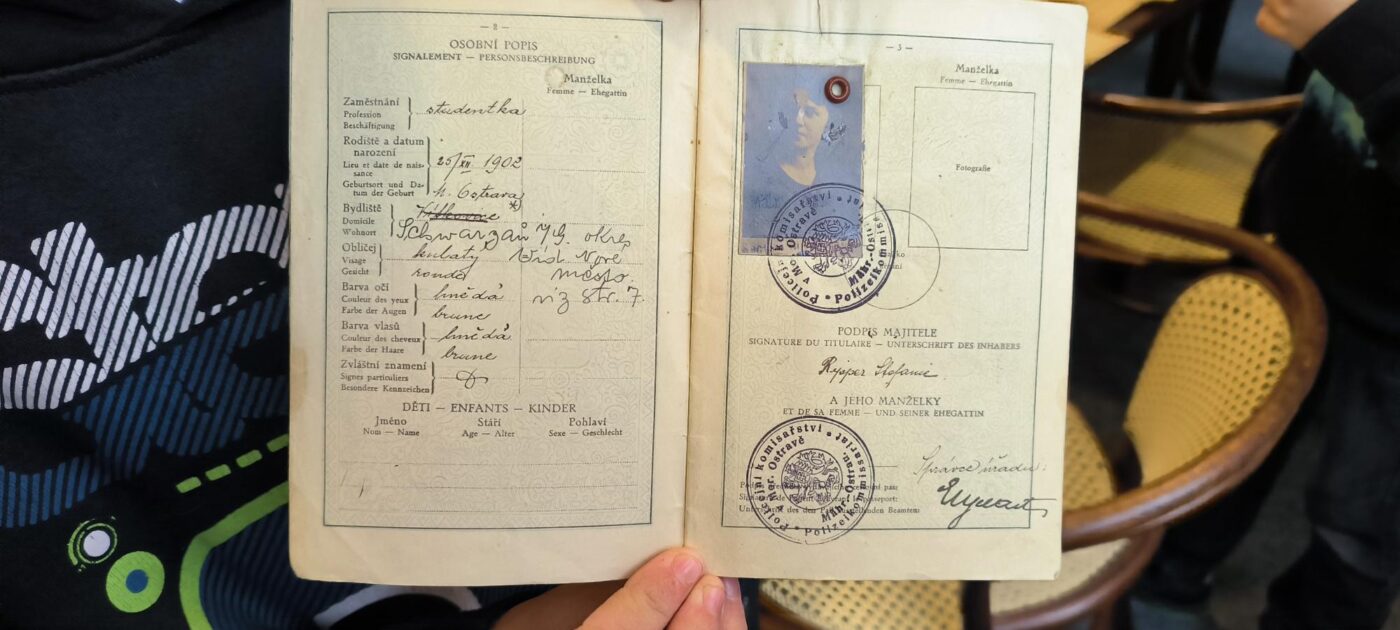 — 2 —
OSOBNÍ POPIS
SIGNALEMENT — PERSONSBESCHREIBUNG
Manželka
Femme — Ehegattin
Zaměstnání
Profession
Beschäftigung
studentka
Rodiště a datum
narození
Lieu et date de nais-
sance
Geburtsort und Da-
tum der Geburt
25/XII 1902
M. Ostrava
Bydliště
Domicile
Wohnort
*)
Schwarzau okres
Obličej
Visage
Gesicht
kulatý
Nové
ronde
město.
Barva očí
Couleur des yeux
Farbe der Augen
hnědá
viz str. 7.
brune
Barva vlasů
Couleur des cheveux
Farbe der Haare
hnědá
brune
Zvláštní znamení
Signes particuliers
Besondere Kennzeichen
DĚTI — ENFANTS — KINDER
Jméno
Nom — Name
Stáří
Age — Alter
Pohlaví
Sexe — Geschlecht
— 3 —
Manželka
Femme — Ehegattin
Fotografie
Policejní komisařství
v Mor. Ostravě
Polizeikommissariat
Mähr.-Ostrau
PODPIS MAJITELE
SIGNATURE DU TITULAIRE — UNTERSCHRIFT DES INHABERS
Ripper Stefanie
A JEHO MANŽELKY
ET DE SA FEMME — UND SEINER EHEGATTIN
Policejní komisařství
v Mor. Ostravě
Polizeikommissariat
Mähr.-Ostrau
Správce úřadu: